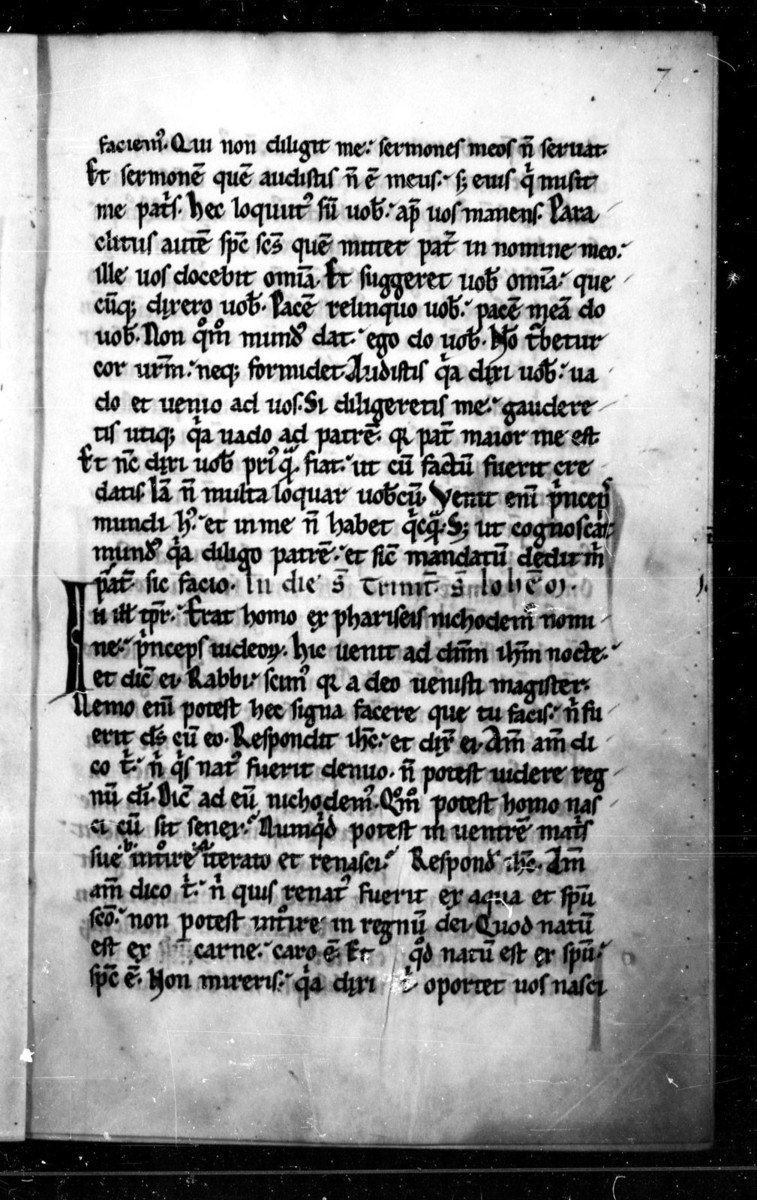 7
faciemꝰ. Qui non diligit me. sermones meos n̄ seruat.
Et sermonē quē audistis n̄ ē meus. sꝫ eius q̇ misit
me pat̄s. hec locutꝰ sū uob̄. ap̄ uos manens. Para
clitus autē sp̄c sc̄s quē mittet pat̄ in nomine meo.
ille uos docebit om̄ia. Et suggeret uob̄ om̄ia. que
cūqꝫ dixero uob̄. Pacē relinquo uob̄. pacē meā do
uob̄. Non qͦm̄ mundꝰ dat. ego do uob̄. No t̄betur
cor ur̄m. neqꝫ formidet. Audistis q̇a dixi uob̄. ua
do et uenio ad uos. Si diligeretis me. gaudere
tis utiqꝫ q̇a uado ad patrē. qꝛ pat̄ maior me est.
Et nc̄ dixi uob̄ priꝰq̄. fiat. ut cū factū fuerit cre
datis. Iā n̄ multa loquar uob̄cū. Venit eni̅ ṗnceps
mundi hꝰ. et in me n̄ habet q̇cq̄. Sꝫ ut cognoscat
mundꝰ q̇a diligo patrē. et sic̄ mandatū dedit ṁ
pat̄. sic facio. In die s̄ Trinit̄. s̄ Ioh̄em.
In ill̄ tp̄r. Erat homo ex phariseis nichodemꝰ nomi
ne. ṗnceps iudeoꝝ. hic uenit ad dn̄m ih̄m nocte.
et dic̄ ei. Rabbi. scimꝰ qꝛ a deo uenisti magister.
Nemo eni̅ potest hec signa facere que tu facis. n̄ fu
erit ds̄ cū eo. Respondit ih̄c. et dix̄ ei. Am̄ am̄ di
co t̄. n̄ q̇s natꝰ fuerit denuo. n̄ potest uidere reg
nū di̅. Dic̄ ad eū nichodemꝰ. Qͦm̄ potest homo nas
ci cū sit senex. Numq̇d potest in uentrē mat̄s
sue int̄ire iterato et renasci. Respondꝰ ih̄c. Am̄
am̄ dico t̄. n̄ quis renatꝰ fuerit ex aqua et spū
scō. non potest int̄ire in regnū dei. Quod natū
est ex carne. caro ē. Et qͦd natū est ex spū.
sp̄c ē. Non mireris. q̇a dixi t̄ oportet uos nasci